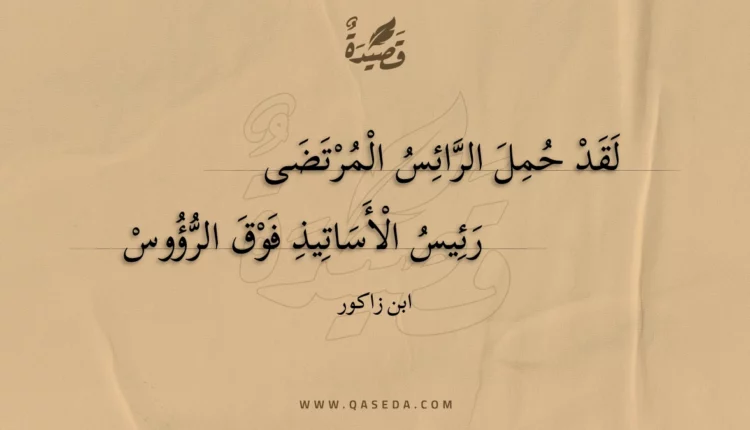 قَصِيدَةٌ
لَقَدْ حُمِلَ الرَّائِسُ الْمُرْتَضَى
رَئِيسُ الْأَسَاتِيذِ فَوْقَ الرُّؤُوسْ
ابن زاكور
WWW.QASEDA.COM